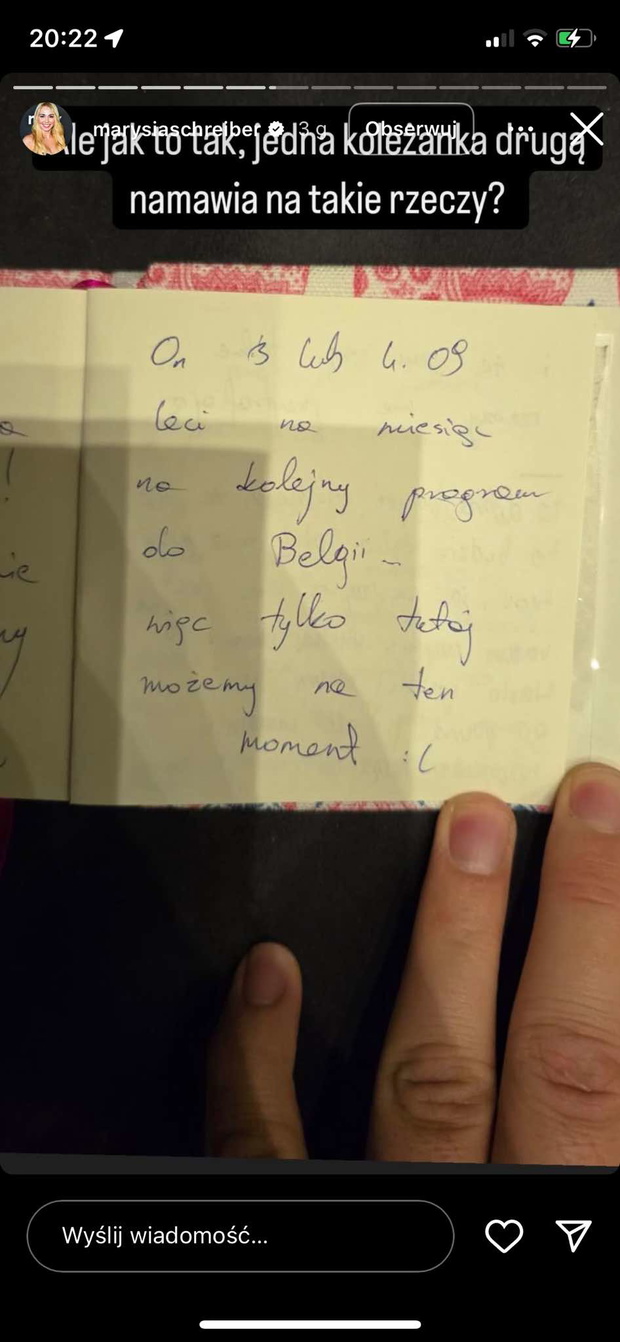 20:22
marysiaschreiber 13 g Obserwuj
Ale jak to tak, jedna koleżanka drugą
namawia na takie rzeczy?
On 3 lub 4. 09
leci na miesiąc
na kolejny program
do Belgii -
więc tylko tutaj
możemy na ten
moment :(
Wyślij wiadomość...